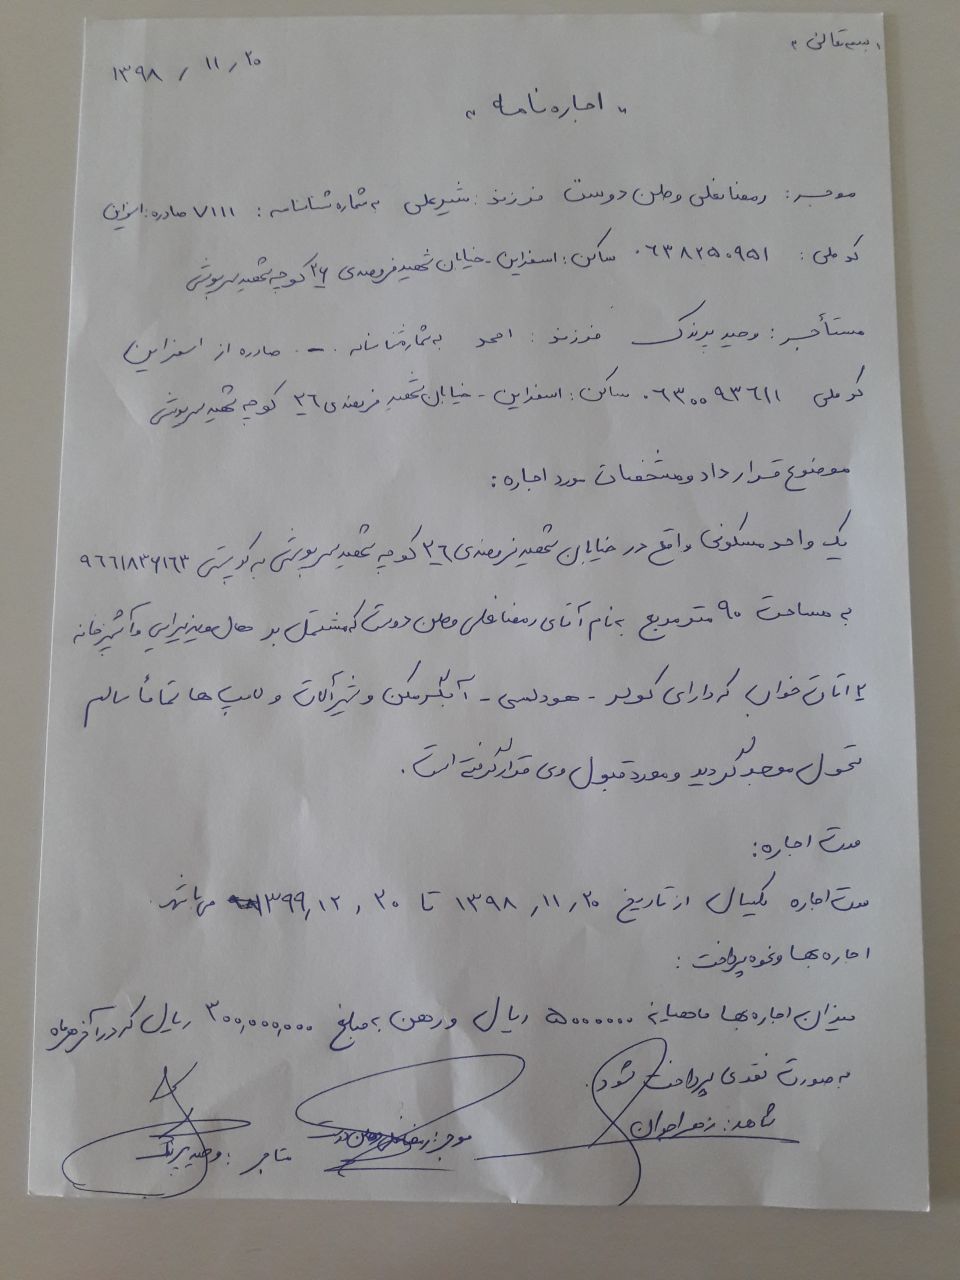 بسمه تعالی
۱۳۹۸ / ۱۱ / ۲۰
" اجاره نامه "
موجر : رمضانعلی وطن دوست فرزند : شیرعلی به شماره شناسنامه : ۷۱۱۱ صادره : اسفراین
کد ملی : ۰۶۳۸۲۵۰۹۵۱ ساکن : اسفراین - خیابان شهید فرهمندی ۲۶ کوچه شهید سرپوشی
مستأجر : وحید پرندک فرزند : احمد به شماره شناسنامه ۰ - ۰ صادره از اسفراین
کد ملی ۰۶۳۰۰۹۳۶۱۱ ساکن : اسفراین - خیابان شهید فرهمندی ۲۶ کوچه شهید سرپوشی
موضوع قرار داد و مشخصات مورد اجاره :
یک واحد مسکونی واقع در خیابان شهید فرهمندی ۲۶ کوچه شهید سرپوشی به کد پستی ۹۶۶۱۸۳۶۱۶۳
به مساحت ۹۰ متر مربع به نام آقای رمضانعلی وطن دوست که مشتمل بر هال و پذیرایی و آشپزخانه
۲ اتاق خواب که دارای کولر - هود گسی - آبگرمکن و شیرآلات و لامپ ها تماماً سالم
تحویل موجر گردید و مورد قبول وی قرار گرفته است .
مدت اجاره :
مدت اجاره یکسال از تاریخ ۱۳۹۸/۱۱/۲۰ تا ۱۳۹۹/۱۲/۲۰ می باشد .
اجاره بها و نحوه پرداخت :
میزان اجاره بها ماهیانه ۵۰۰۰۰۰۰ ریال و رهن به مبلغ ۳۰۰,۰۰۰,۰۰۰ ریال که در آخر هر ماه
به صورت نقدی پرداخت شود .
شاهد : زهرا جوان
موجر : رمضانعلی وطن دوست
متاجر : وحید پرندک